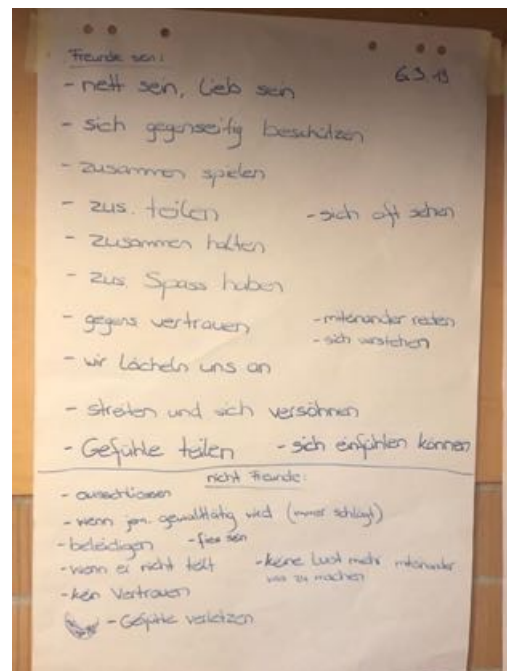 Freunde sein:
6.3.19
- nett sein, lieb sein
- sich gegenseitig beschützen
- zusammen spielen
- zus. teilen - sich oft sehen
- zusammen halten
- zus. Spass haben
- gegens. vertrauen - miteinander reden
- sich verstehen
- wir lächeln uns an
- streiten und sich versöhnen
- Gefühle teilen - sich einfühlen können
nicht Freunde:
- ausschliessen
- wenn jem. gewalttätig wird (immer schlägt)
- beleidigen - fies sein
- wenn er nicht teilt - keine Lust mehr miteinander
was zu machen
- kein Vertrauen
- Gefühle verletzen